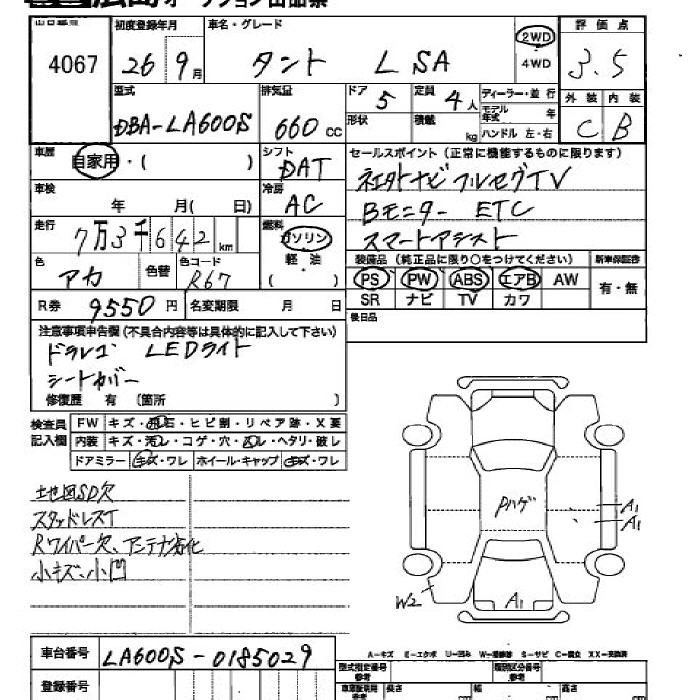 オークション出品票
出品番号 初度登録年月 車名・グレード 2WD 4WD 評価点
4067 26 9月 タント L SA 3.5
型式 排気量 ドア 定員 ディーラー・並行 外装 内装
DBA-LA600S 660cc 5 4人 モデル年式 年 C B
形状 積載 kg ハンドル 左・右
車歴 自家用・( ) シフト DAT セールスポイント(正常に機能するものに限ります)
車検 年 月( 日) 冷房 AC ナビ フルセグTV
Bモニター ETC
走行 7万3千642km 燃料 ガソリン 軽・油 ( )
スマートアシスト
色 アカ 色替 色コード R67
装備品(純正品に限り○をつけてください) 新車保証書
PS PW ABS エアB AW 有・無
SR ナビ TV カワ
R券 9550円 名変期限 月 日 後日品
注意事項申告欄(不具合内容等は具体的に記入して下さい)
ドラレコ LEDライト
シートカバー
修復歴 有 〔箇所 〕
検査員記入欄 FW キズ・飛石・ヒビ割・リペア跡・X要
内装 キズ・汚レ・コゲ・穴・・ヘタリ・破レ
ドアミラー キズ・ワレ ホイール・キャップ キズ・ワレ
地図SD欠
スタッドレスT
Rワイパー欠、アンテナ劣化
小キズ、小凹
Pハゲ
A1
A1
W2
A1
A-キズ E-エクボ U-凹み W-補修跡 S-サビ C-腐食 XX-交換済
車台番号 LA600S-0185029
型式指定番号 参考 類別区分番号 参考
登録番号
長さ 幅 高さ